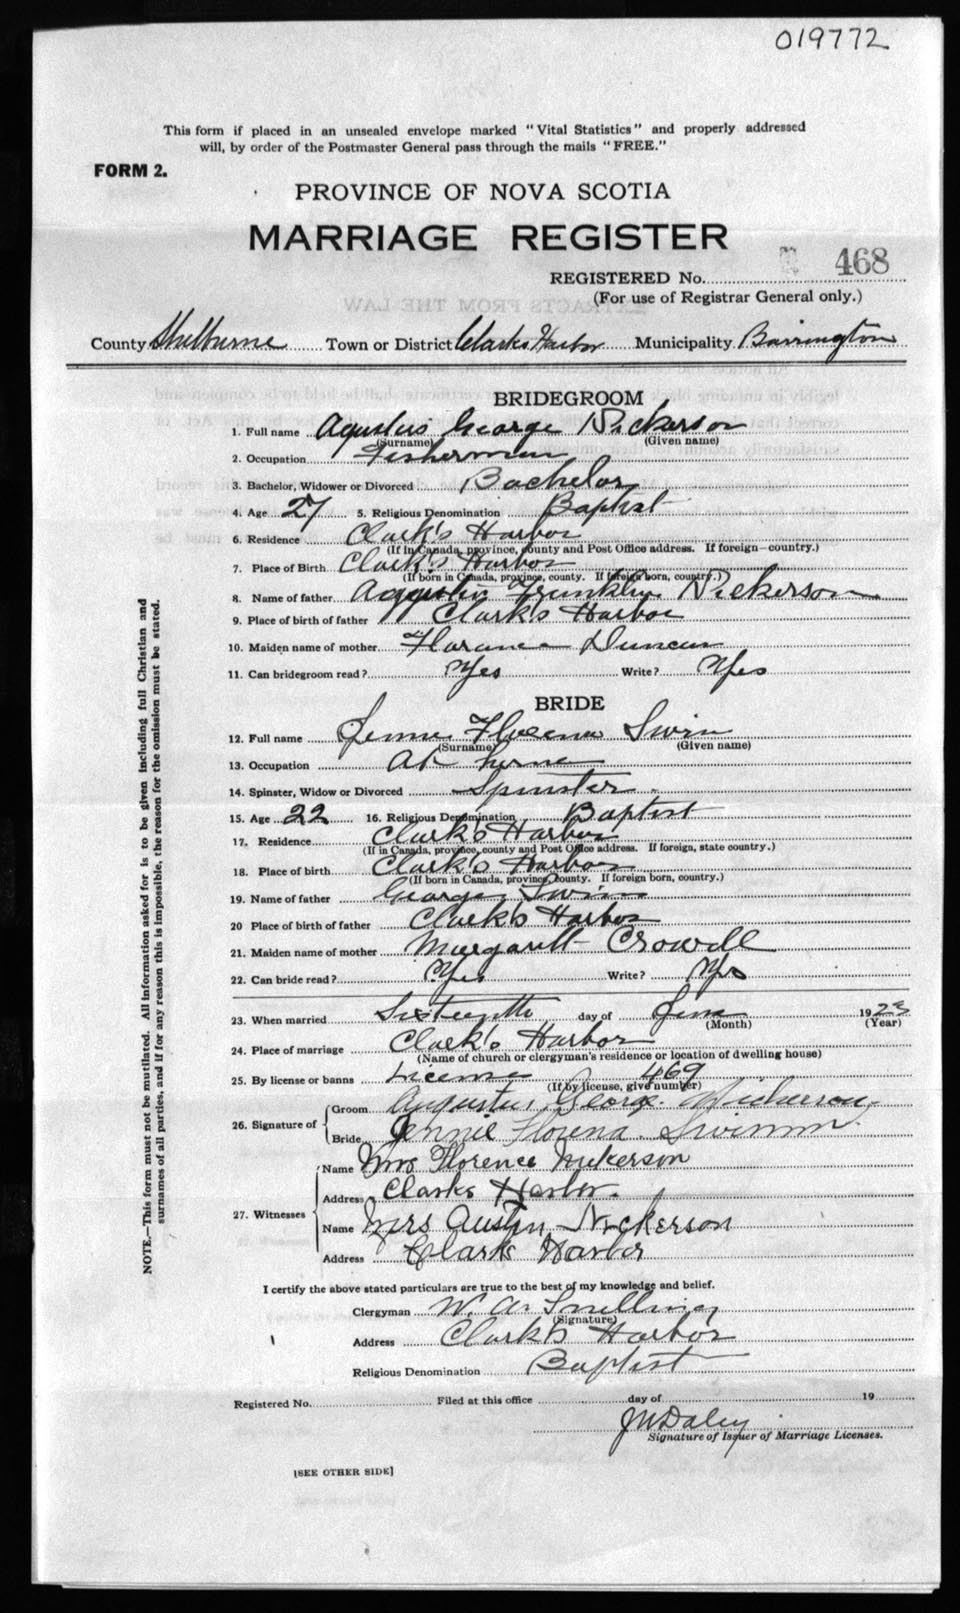 019772
This form if placed in an unsealed envelope marked "Vital Statistics" and properly addressed
will, by order of the Postmaster General pass through the mails "FREE."
FORM 2.
PROVINCE OF NOVA SCOTIA
MARRIAGE REGISTER
REGISTERED No. 468
(For use of Registrar General only.)
County Shelburne Town or District Clarks Harbor Municipality Barrington
BRIDEGROOM
1. Full name Agustus George Nickerson
(Surname) (Given name)
2. Occupation Fisherman
3. Bachelor, Widower or Divorced Bachelor
4. Age 27 5. Religious Denomination Baptist
6. Residence Clark's Harbor
(If in Canada, province, county and Post Office address. If foreign—country.)
7. Place of Birth Clark's Harbor
(If born in Canada, province, county. If foreign born, country.)
8. Name of father Franklin Nickerson
9. Place of birth of father Clark's Harbor
10. Maiden name of mother Florance Duncan
11. Can bridegroom read? Yes Write? Yes
BRIDE
12. Full name Jennie Swim
(Surname) (Given name)
13. Occupation At home
14. Spinster, Widow or Divorced Spinster.
15. Age 22 16. Religious Denomination Baptist
17. Residence Clark's Harbor
(If in Canada, province, county and Post Office address. If foreign, state country.)
18. Place of birth Clark's Harbor
(If born in Canada, province, county. If foreign born, country.)
19. Name of father George Swim
20 Place of birth of father Clark's Harbor
21. Maiden name of mother Margarett Crowell
22. Can bride read? Yes Write? Yes
23. When married Sixteenth day of June 1923
(Month) (Year)
24. Place of marriage Clark's Harbor
(Name of church or clergyman's residence or location of dwelling house)
25. By license or banns License 469
(If by license, give number)
26. Signature of Groom Augustus George. Nickerson.
Bride Jennie Florena. Swimm.
27. Witnesses Name Mrs Florence Nickerson
Address Clarks Harbor.
Name Mrs Austin Nickerson
Address Clarks Harbor
I certify the above stated particulars are true to the best of my knowledge and belief.
Clergyman W. A. Snelling
(Signature)
Address Clark's Harbor
Religious Denomination Baptist
Registered No. Filed at this office day of 19
J M Daley
Signature of Issuer of Marriage Licenses.
[SEE OTHER SIDE]
NOTE.—This form must not be mutilated. All information asked for is to be given including full Christian and
surnames of all parties, and if for any reason this is impossible, the reason for the omission must be stated.